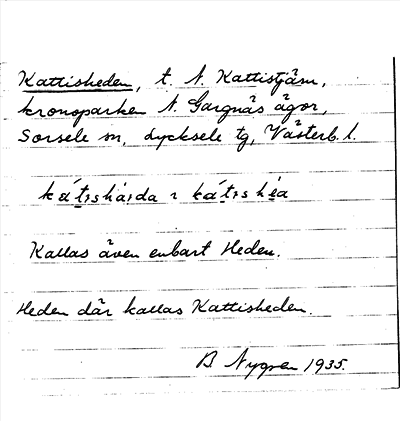 Kattisheden, t. N. Kattistjärn,
kronoparken N. Gargnäs ägor,
Sorsele sn, Lycksele tg, Västerb. l.
Kallas även enbart Heden.
Heden där kallas Kattisheden.
B Nygren 1935.